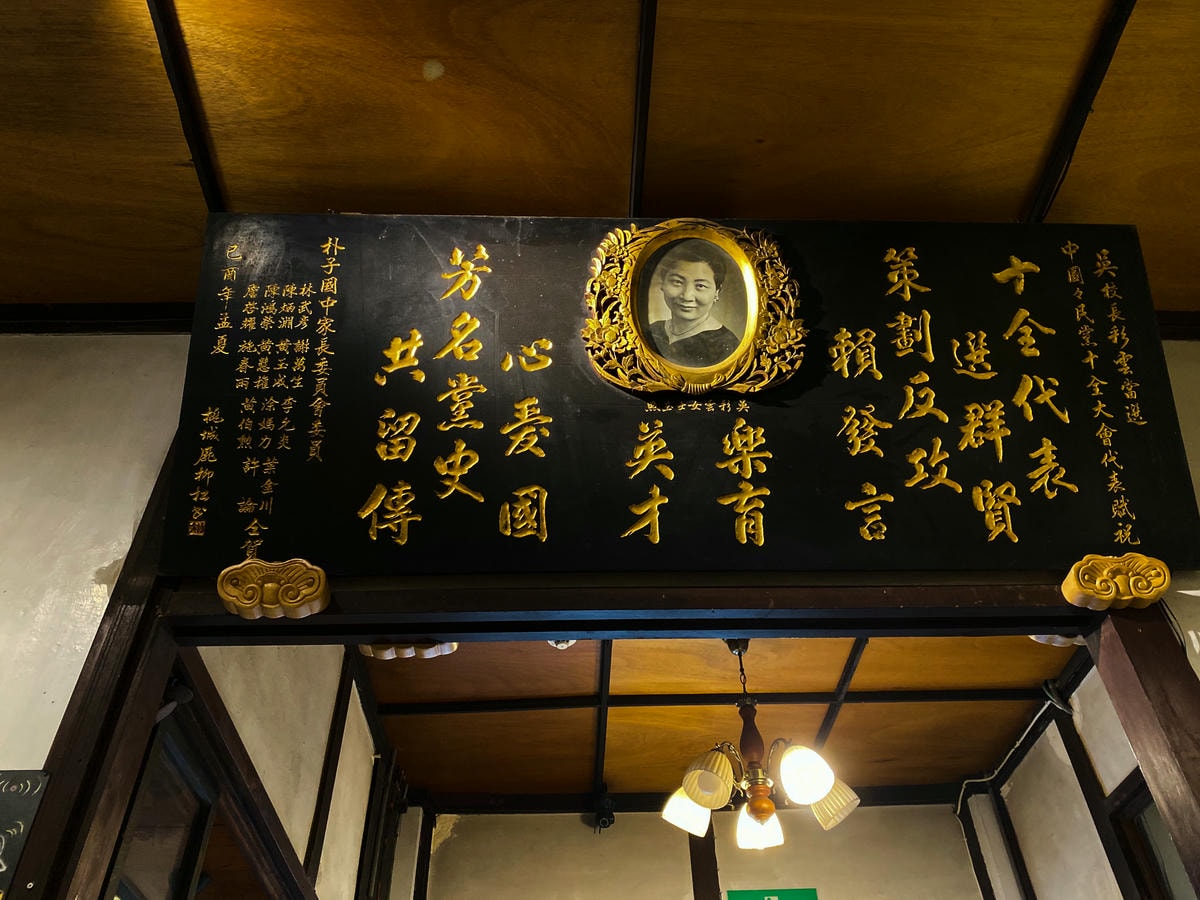 吳校長彩雲當選
中國々民黨十全大會代表賦祝
十全代表
選群賢
策劃反攻
賴發言
樂育
吳彩雲女士玉照
英才
心愛國
芳名黨史
共留傳
朴子國中家長委員會委員
林武彥 謝萬生 李元炎
陳炳淵 黃玉成 涂媽力 葉金川
陳鴻榮 黃思權
詹啓耀 施春雨 黃伯 許論 仝賀
己酉年孟夏 桃城 柳